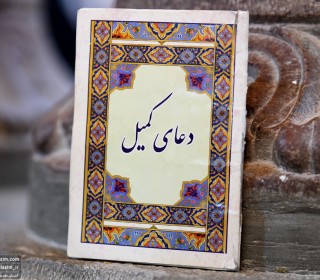 دعای کمیل